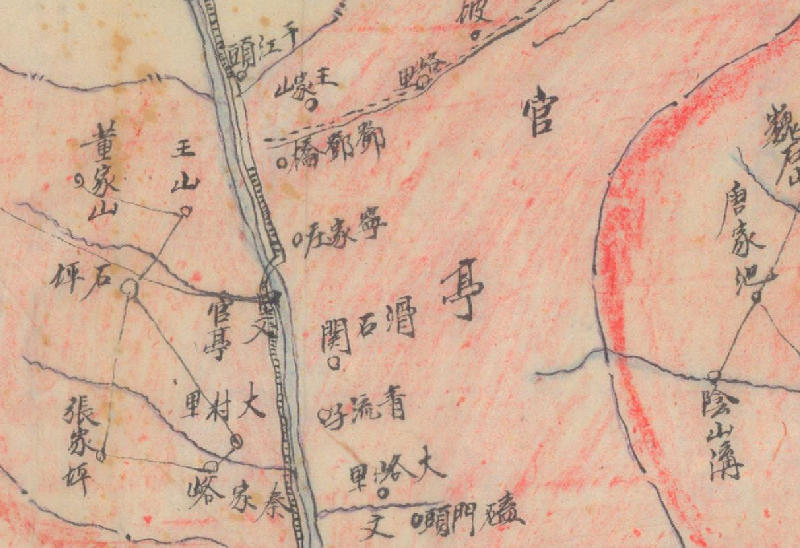 官
亭
王家山
鄧鄧橋
寧家庄
滑石関
青流子
大峪里
磕門頭
文
王山
董家山
石坪
官亭
文
大村里
張家坪
秦家峪
唐家池
陰山溝
魏石山
峪里
坡